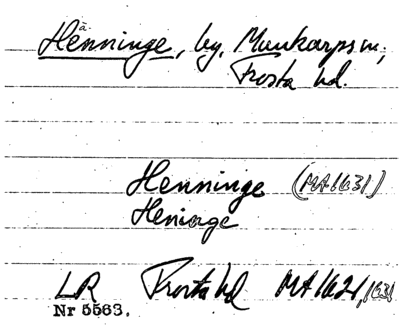 Henninge, by, Munkarps sn,
Frosta hd.
Henninge (MA 1631)
Heninge
LR Frosta hd MA 1621, 1631
Nr 5563.